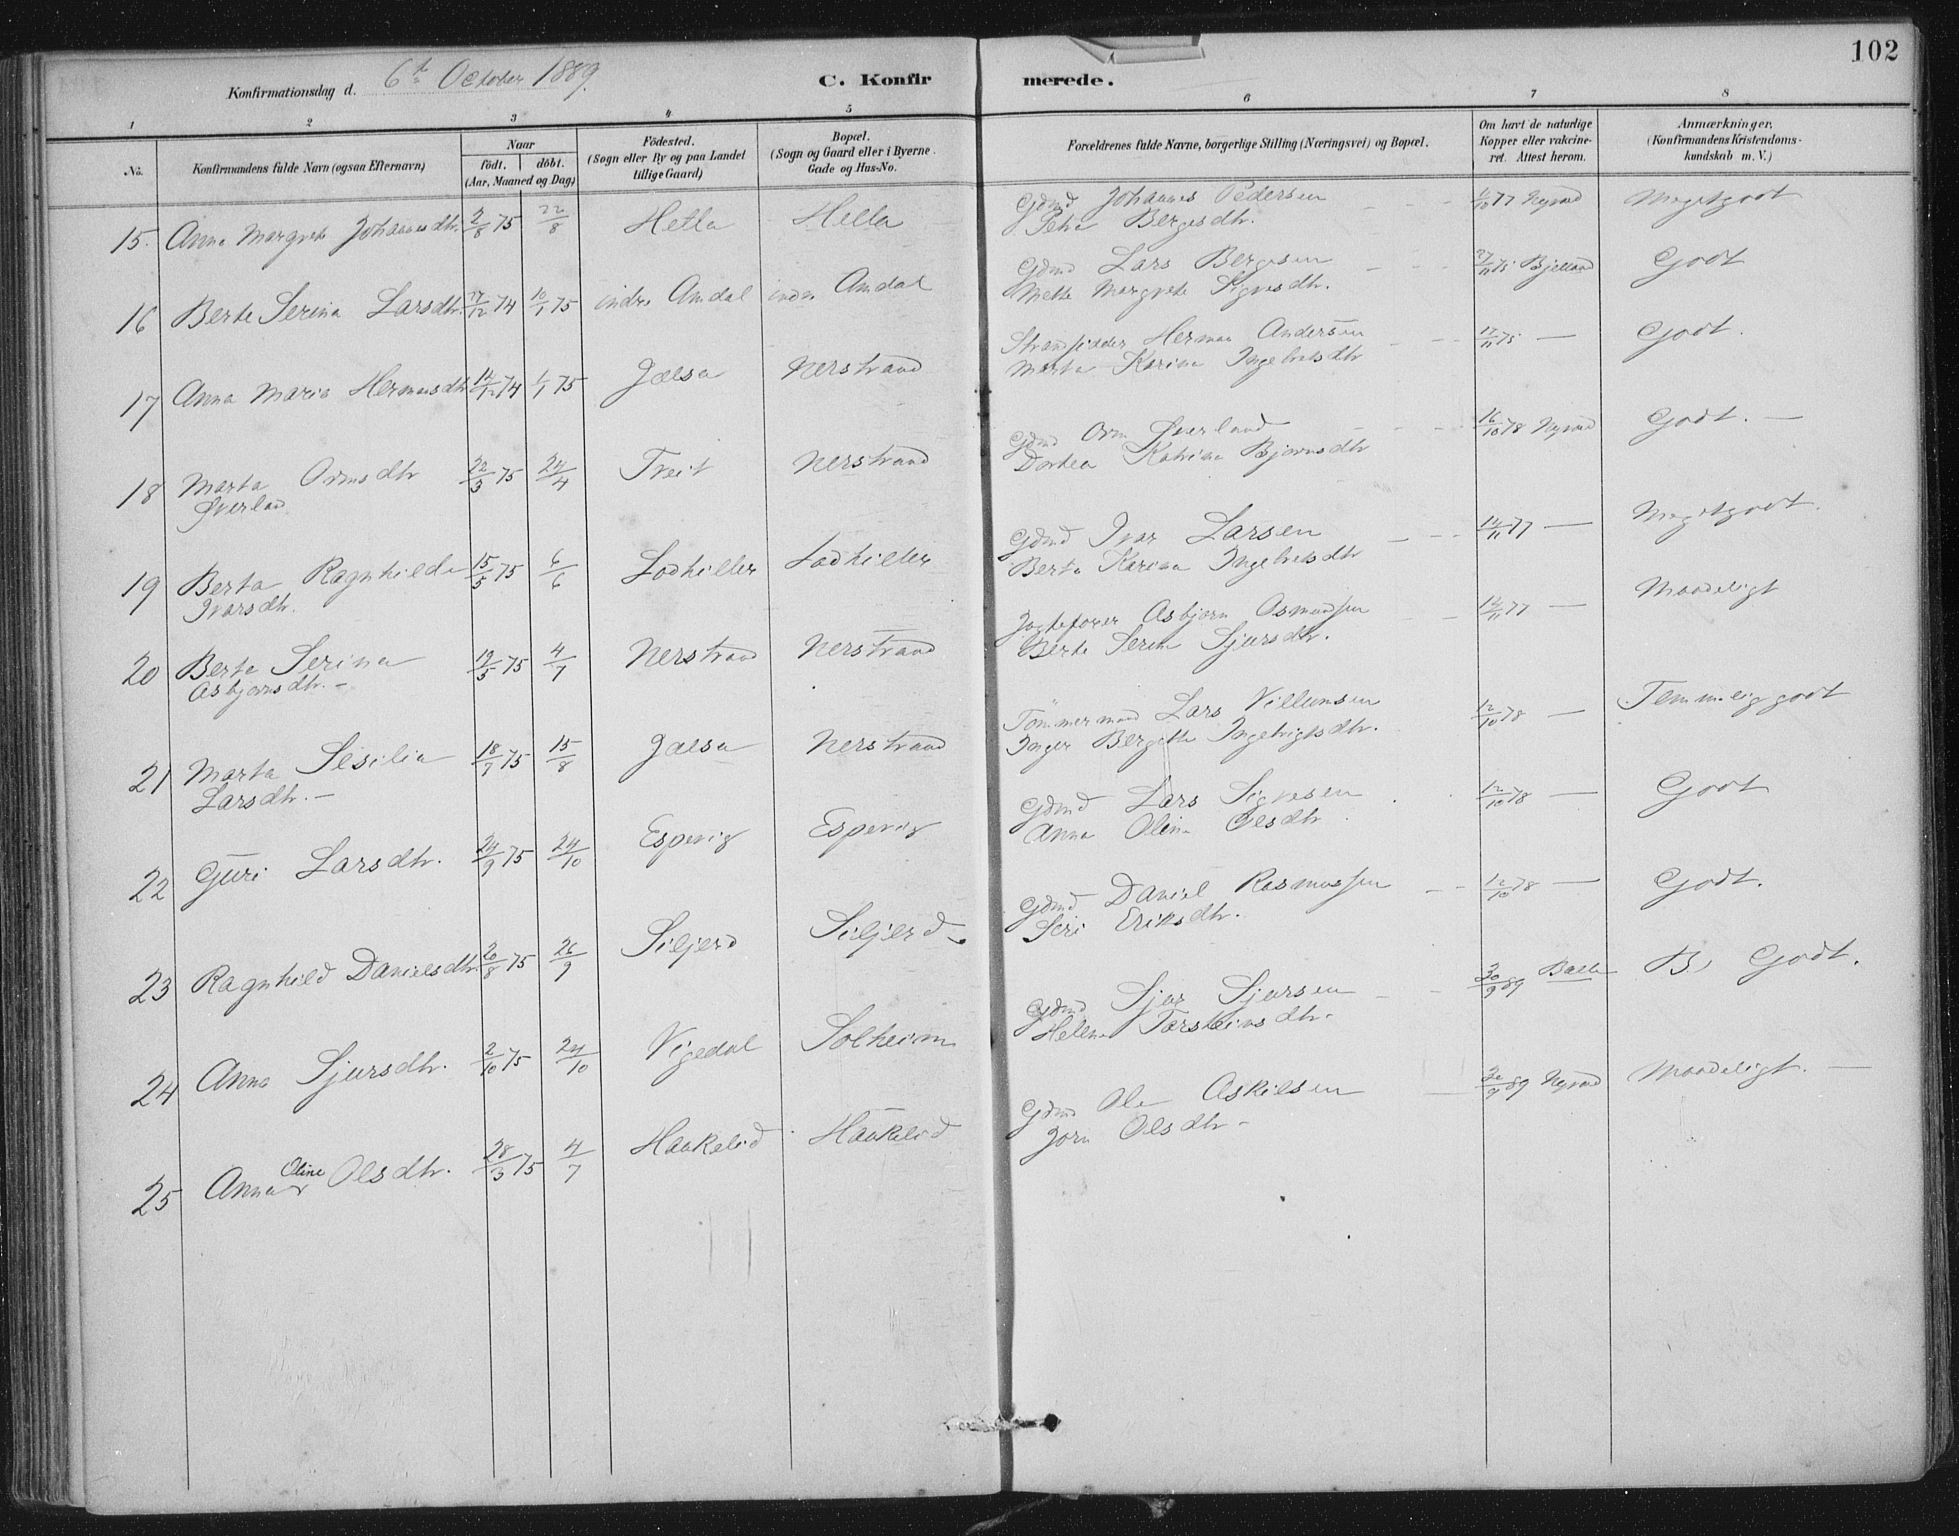 102
Konfirmationsdag d. 6te October 1889.
C. Konfirmerede.
1 2 3 4 5 6 7 8
No.
Konfirmandens fulde Navn (ogsaa Efternavn)
Naar
födt. döbt.
(Aar, Maaned og Dag)
Födested.
(Sogn eller By og paa Landet
tillige Gaard)
Bopæl.
(Sogn og Gaard eller i Byerne
Gade og Hus-No.
Forældrenes fulde Navne, borgerlige Stilling (Næringsvei) og Bopæl.
Om havt de naturlige
Kopper eller vakcine-
ret. Attest herom.
Anmærkninger.
(Konfirmandens Kristendoms-
kundskab m. V.)
Gdmd Johannes Pedersen
Petra Bergesdtr.
15. Anna Margrete Johannesdtr. 2/8 75 22/8 Hella Hella 77 Nyvod Megetgodt
Gdmd Lars Bergesen
Mette Margrete Sigvesdtr.
16 Berte Serina Larsdtr. 27/12 74 10/1 75 indre Amdal indre Amdal 27/11 75 Bjelland Godt
Strandsidder Herman Andersen
Marta Karina Ingebretsdtr
17 Anna Maria Hermansdtr 12/12 74 1/1 75 Jælsa Nerstrand 17/11 75 — Godt.
Gdmd Orm Øverland
Dortea Katrina Bjørnsdtr
18 Marta Ormsdtr
Øverland 22/3 75 24/4 Tveit Nerstrand 16/10 78 Nyvod Godt. —
Gdmd Ivar Larsen
Berta Karina Ingebretsdtr
19 Berta Ragnhilda
Ivarsdtr. 15/5 75 6/6 Lodhiller Lodhiller 12/11 77 — Megetgodt.
Jagtefører Asbjørn Osmundsen
Berte Serina Sjursdtr.
20 Berta Serina
Asbjørnsdtr. — 19/5 75 4/7 Nerstrand Nerstrand 12/11 77 — Maadeligt
Tömmermand Lars Villumsen
Inger Bergitte Ingebrigtsdtr.
21 Marta Sesilia
Larsdtr. — 18/7 75 15/8 Jælsa Nerstrand 12/10 78 — Temmelig godt
Gdmd Lars Sigvesen
Anna Olina Olsdtr
22 Guri Larsdtr. 24/9 75 24/10 Espevig Espevig 12/10 78 — Godt
Gdmd Daniel Rasmussen
Seri Eriksdtr.
23 Ragnhild Danielsdtr 20/8 75 26/9 Siljerd Siljerd 12/10 78 — Godt.
Gdmd Sjur Sjursen
Helena Torsteinsdtr.
24 Anna Sjursdtr. 2/10 75 24/10 Vigedal Solheim 30/9 89 Balle B. Godt.
Gdmd Ole Askilsen
Jorn Olsdtr —
25 Anna Oline Olsdtr. 28/3 75 4/7 Haakelid Haakelid 30/9 89 Nyvod Maadeligt. —